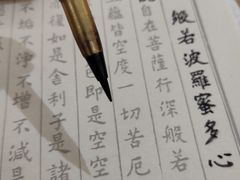 般若波羅蜜多心
自在菩薩行深般若
蘊皆空度一切苦厄
即是空空
復如是舍利子是諸
不垢不淨不增不減是